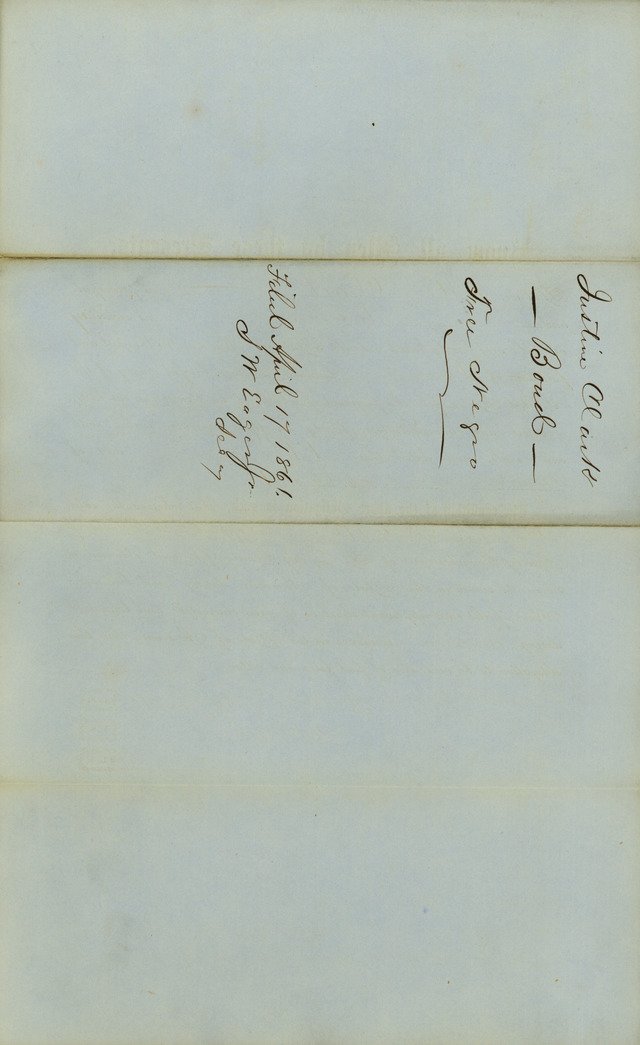 Justine Clark
— Bond —
Free Negro
Filed April 17 1861.
J W Eager Jr.